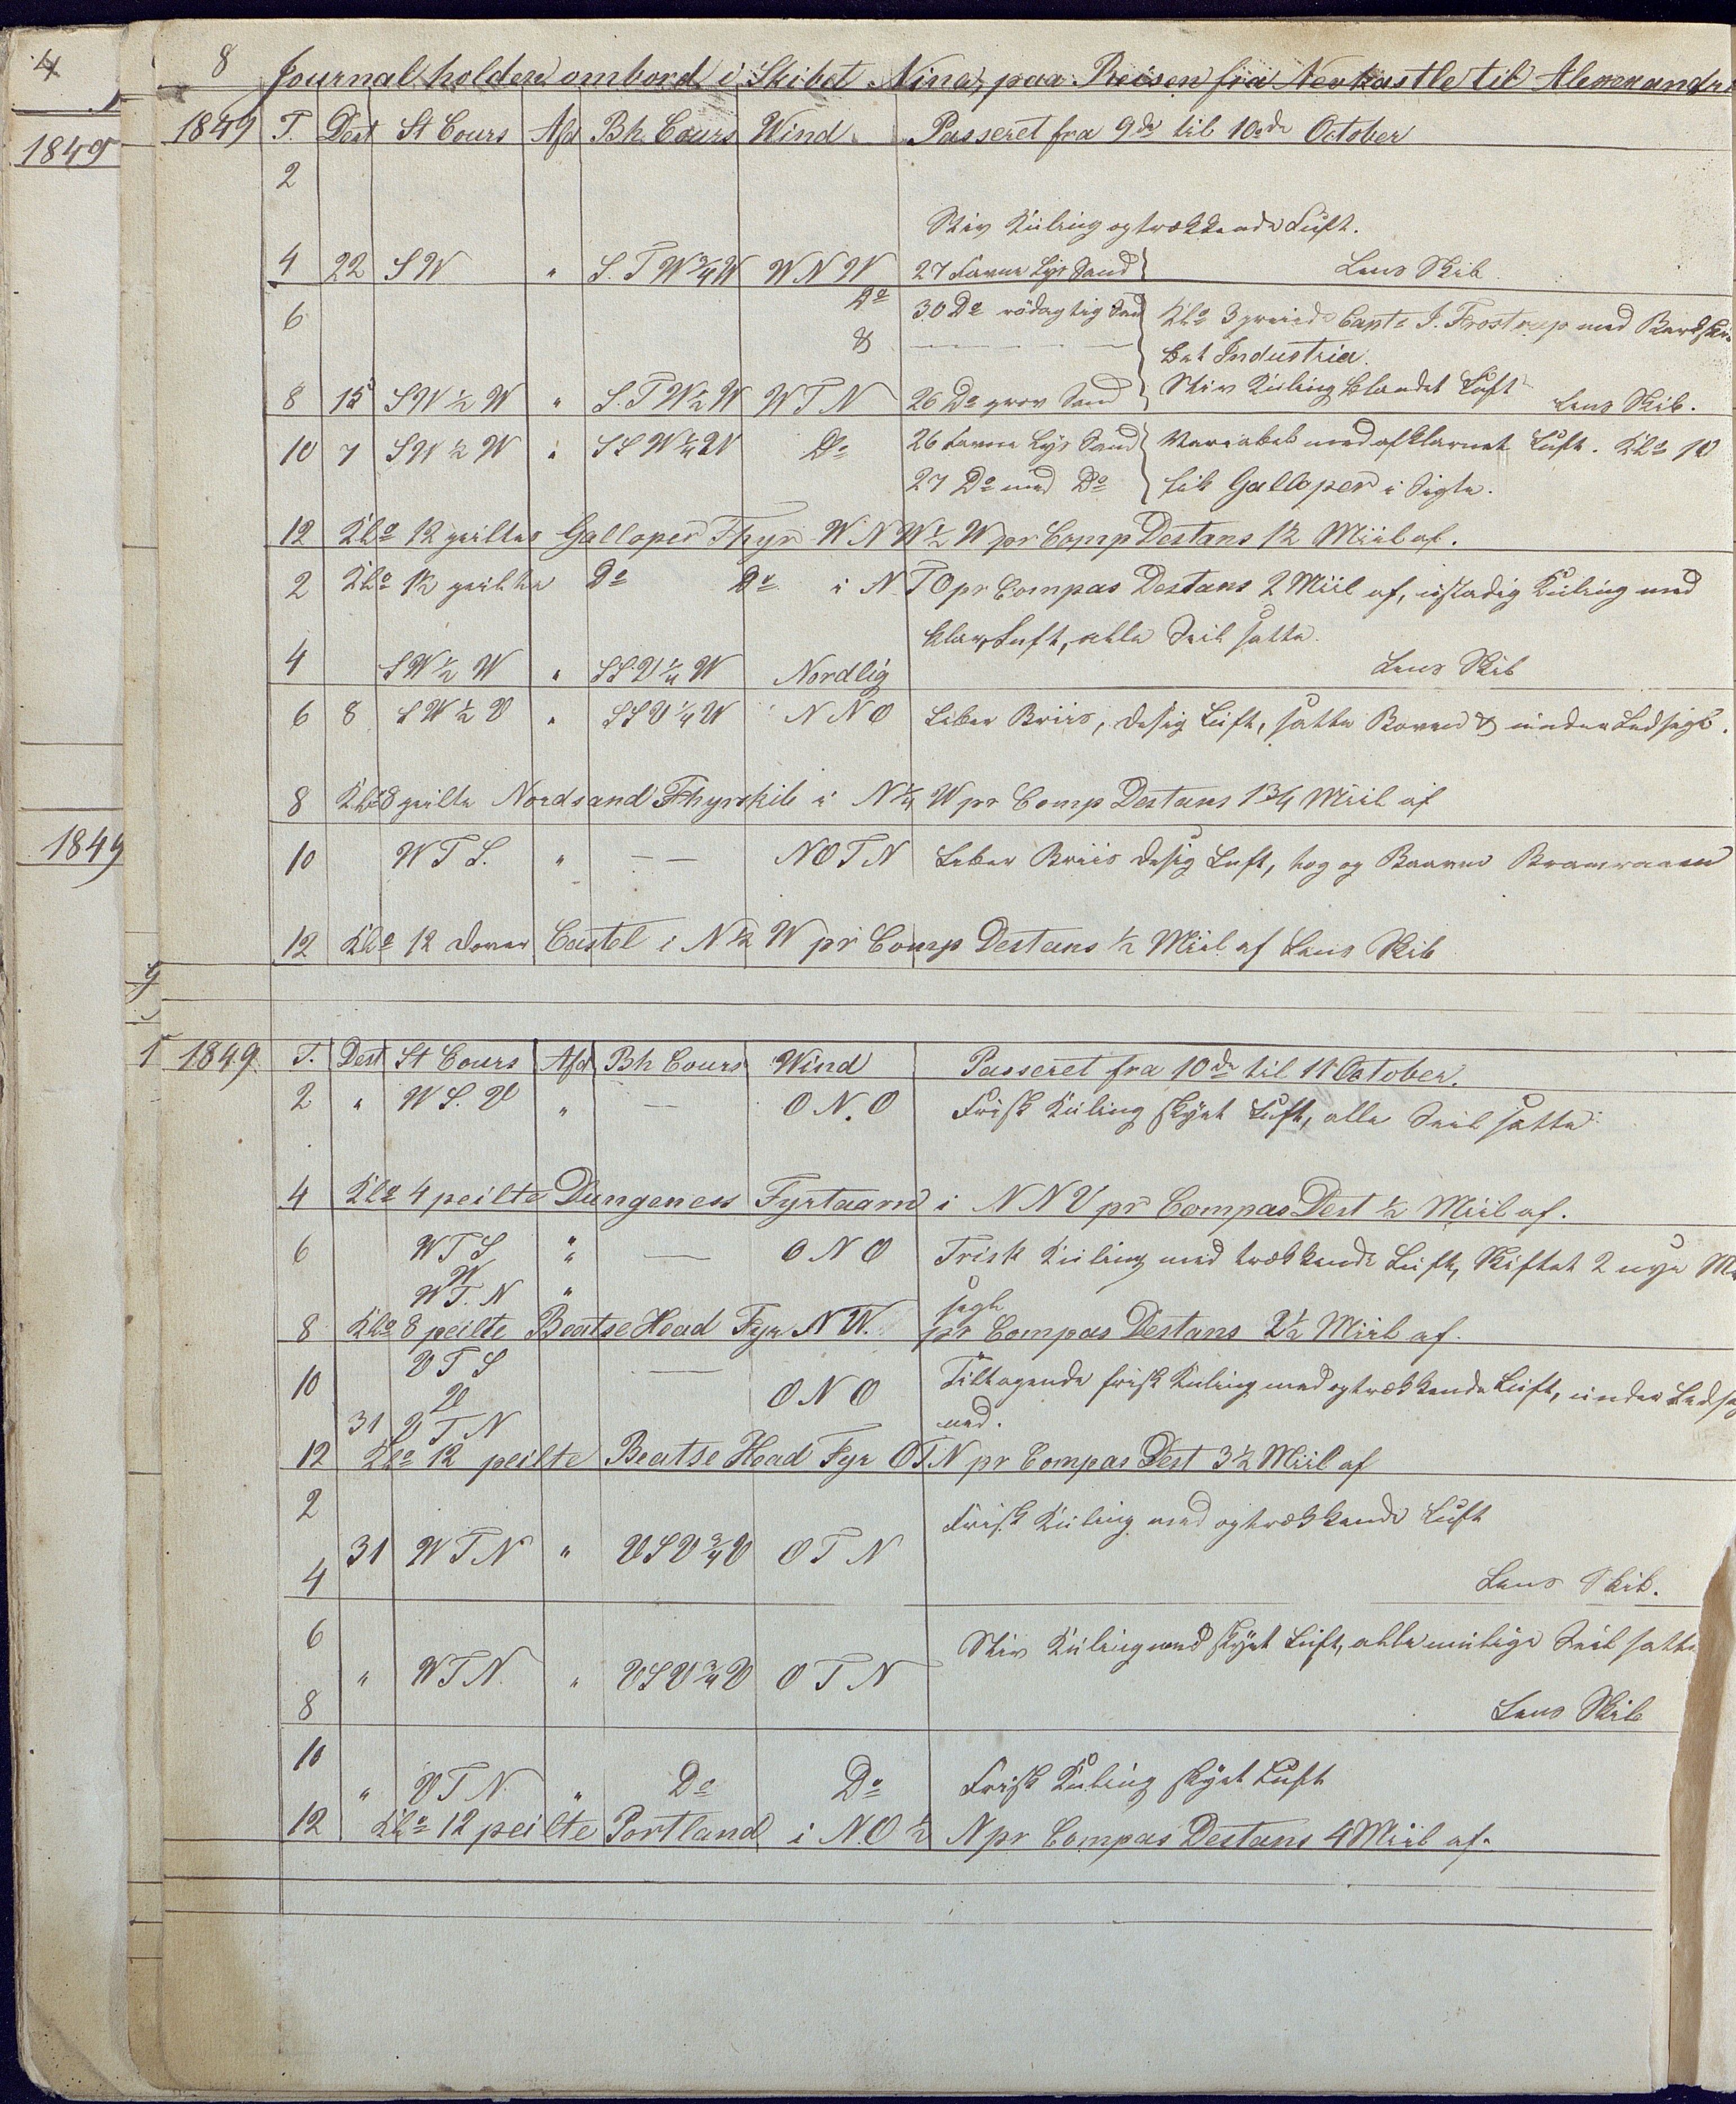 4
1849
1849
9
1
8 Journal holden ombord i Skibet Nina, paa Reisen fra Newkastle til Alexandri
1849 T. Dest St Cours Afd Bh. Cours Wind Passeret fra 9de til 10de October
2
Stiv Kuling og trækkende Luft.
4 22 SW " S.T.W 3/4 W WNW 27 Favne Lys Sand Lens Skib
6 Do 30 Do rödagtig Sand Klo 3 preiede Capt: J. Frostrup med Barkski-
& — — bet Industria.
8 15 SW 1/2 W " S.T.W 1/2 W WTN 26 Do grov Sand Stiv Kuling blandet Luft Lens Skib.
10 7 SW 1/2 W " SSW 1/4 W Do 26 Favne Lys Sand Variabel med afklarnet Luft. Klo 10
27 Do med Do fik Galloper i Sigte.
12 Klo 12 peiltes Galloper Fhyr WNW 1/2 W pr Comp Destans 1 1/2 Miil af.
2 Klo 12 peilte Do Do i NTO pr Compas Destans 2 Miil af, ustadig Kuling med
klar Luft, alle Seil satte.
4 SW 1/2 W " SSV 1/4 W Nordlig Lens Skib
6 8 SW 1/2 V " SSV 1/4 W NNO Laber Briis, disig Luft, satte Boven & under Ledsegl.
8 Klo 8 peilte Nordsand Fhyrskib i N 1/4 W pr Comp Destans 1 3/4 Miil af
10 WTS. " — — NOTN Laber Briis disig Luft, tog op Bramraaen
12 Klo 12 Dover Castel i N 1/2 W pr Comp Destans 1/2 Miil af Lens Skib
1849 T. Dest St Cours Afd Bh Cours Wind Passeret fra 10de til 11 October.
2 " WS.V " — ON.O Frisk Kuling skyet Luft, alle Seil satte
4 Klo 4 peilte Dungeness Fyrtaarn i NNV pr Compas Dest 1/2 Miil af.
6 WTS " — ONO Frisk Kuling med trækkende Luft, Skiftet 2 nye M
W
WT.N " segl
8 Klo 8 peilte Beatse Head Fyr NW. pr Compas Destans 2 1/2 Miil af.
10 VTS — ONO Tiltagende frisk Kuling med optrækkende Luft, under Ledseg
V
31 VTN ned.
12 Klo 12 peilte Beatse Head Fyr OTN pr Compas Dest 3 1/2 Miil af
2 Frisk Kuling med optrækkende Luft
31 WTN " VSV 3/4 V OTN
4 Lens Skib.
6 Stiv Kuling med skyet Luft, alle mulige Seil satte
" WTN. " VSV 3/4 V OTN
8 Lens Skib
10
" VTN " Do Do Frisk Kuling skyet Luft
12 Klo 12 peilte Portland i N.O 1/2 N pr Compas Destans 4 Miil af.